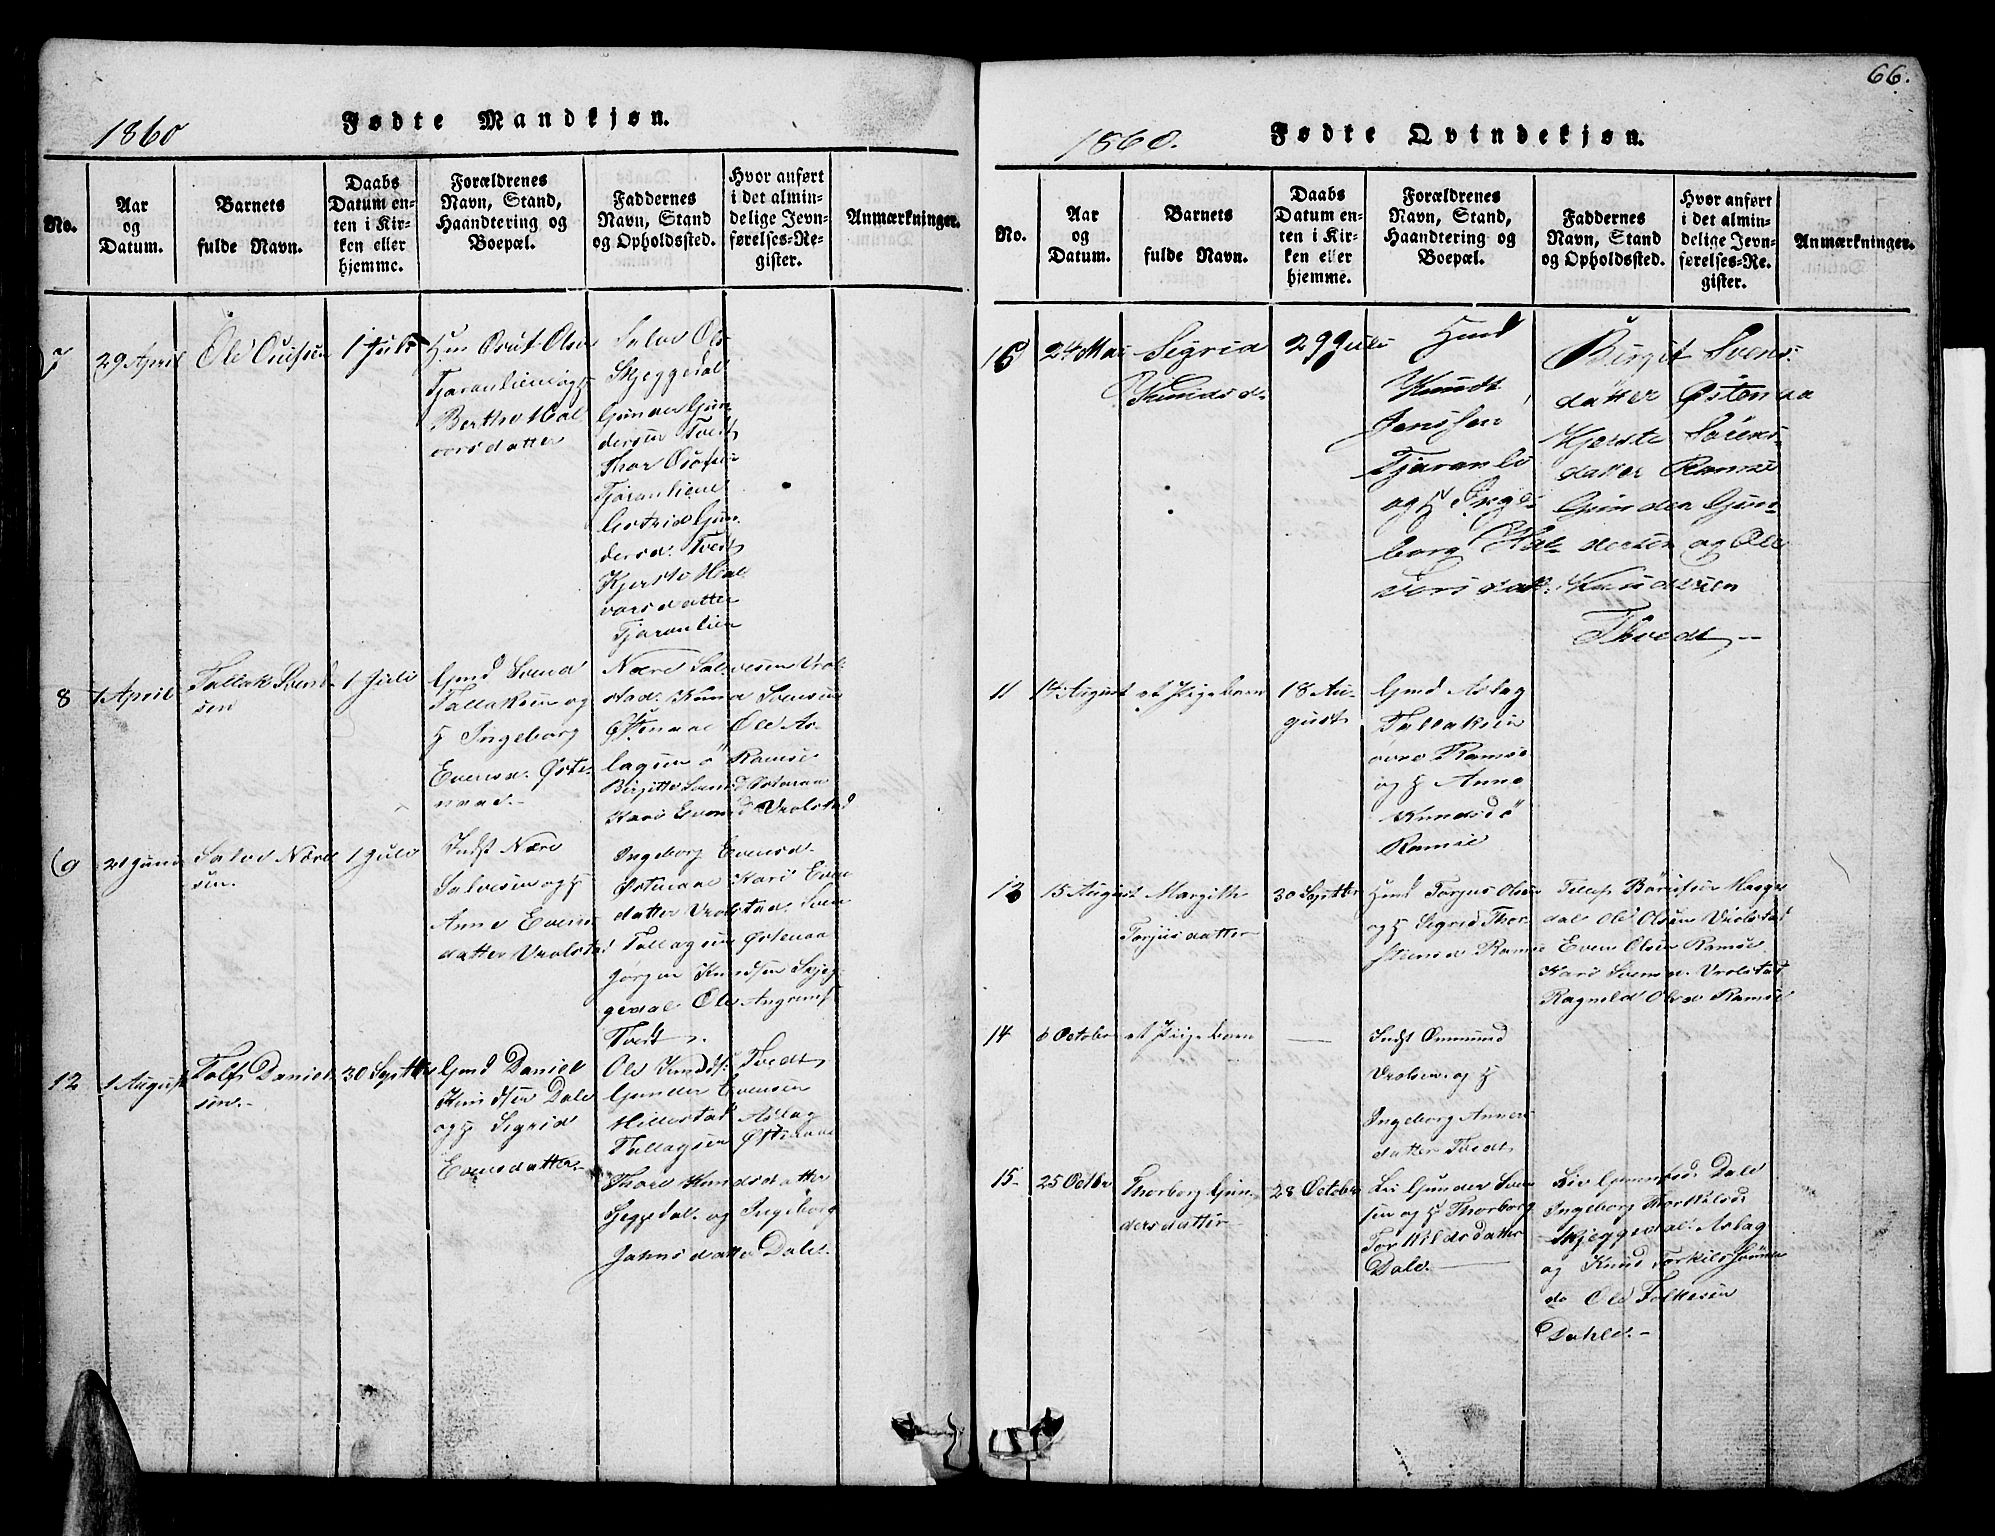 66.
1860
Fødte Mandkjøn.
No.
Aar
og
Datum.
Barnets
fulde Navn.
Daabs
Datum en-
ten i Kir-
ken eller
hjemme.
Forældrenes
Navn, Stand,
Haandtering og
Boepæl.
Faddernes
Navn, Stand
og Opholdssted.
Hvor anført
i det almin-
delige Jevn-
førelses-Re-
gister.
Anmærkninger.
7
29 April
Ole
1 Juli
Olsen
Tjaranlien og
Berthe Hal
vorsdatter
Salve Ols
Skjeggedal
Gunder Gun
dersen Tvedt
Thor
Tjøranliene
Gun
dersd. Tvedt
Kjerste Hal
vorsdatter
Tjaranlien
8
1 April
Tallak Svend-
sen
1 Juli
Gmd Svend
Tallaksen og
H Ingeborg
Evensd. Øste
naae.
Nære Salvesen Vrol
stad. Knud Svensen
Østenaae Ole As-
lagsen ö Ramse
Birgitte Svensd Østenaa
Kari Evensd Vrolstad
9
21 Juni
Salve Nære
sen.
1 Juli
Indst Nære
Salvesen og H
Anne Evens
datter Vrolstad
Ingeborg Evensd.
Østenaae Kari Even
datter Vrolstad. Sven
Tallagsen Østenaa
Jørgen Knudsen Skjeg
gedal Ole
Tvedt
12
1 August
Tolf Daniel
sen.
30 Septbr
Gmd Daniel
Knudsen Dale
og H Sigrid
Evensdatter
Ole Knuds. Tvedt
Gunder Evensen
Hillestad Aslag
Tallagsen Østenaae
Thore Knudsdatter
og Ingeborg
Jahnsdatter Dale.
1860.
Fødte Qvindekjøn.
No.
Aar
og
Datum.
Barnets
fulde Navn.
Daabs
Datum en-
ten i Kir-
ken eller
hjemme.
Forældrenes
Navn, Stand,
Haandtering og
Boepæl.
Faddernes
Navn, Stand
og Opholdssted.
Hvor anført
i det almin-
delige Jevn-
førelses-Re-
gister.
Anmærkninger.
24 Mai
Sigrid
Knudsd.
29 Juli
Hmd
Knudt
Jenssen
Tjaranli
og H Inge
borg Hal
vorsdatt.
Birgit Svens
datter Østenaa
Kjerste Sörens
datter Ramse
Gunder Gun
dersen og Ole
Knudsen
Thvedt
11
14 August
et Pigebarn
18 Au-
gust
Gmd Aslag
Tallaksen
øvre Ramse
og H Anne
Knudsd ö
Ramse
13
15 August
Margith
Torjusdatter
30 Septbr
Hmd Torjus Olsen
og H Sigrid Thor
stensd Ramse
Tellef
dal Ole Olsen Vrolstad
Even Olsen Ramse
Kari Svensd. Vrolstad
Ragnild Olsd Ramse
14
6 October
et Pigebarn
Indst Ommund
Vrolsen og H
Ingeborg Anners
datter Tvedt
15
25 Octbr
Thorborg Gun
dersdatter
28 October
Gunder Sven
sen og H Thorborg
Torkildsdatter
Dale.
Liv Gunnulfsd Dale
Ingeborg Thorkilsd.
Skjeggedal. Aslag
og Knud Torkils Sönner
do Ole Folkesen
Dahle.